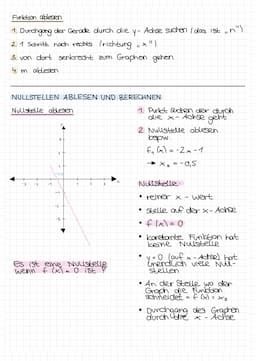 Funktion ablesen
1. Durchgang der Gerade durch die y-Achse suchen (das ist „n")
2. 1 Schritt nach rechts (richtung „x")
3. von dort senkrecht zum Graphen gehen
4. m ablesen
NULLSTELLEN ABLESEN UND BERECHNEN
Nullstelle ablesen
1. Punkt suchen der durch
die x-Achse geht
2. Nullstelle ablesen
bspw.
f₁(x) = -2x-1
→ x₀ = -0,5
Nullstelle
• reiner x-Wert
• stelle auf der x-Achse
• f(x) = 0
• konstante Funktion hat
keine Nullstelle
• y=0 (auf x-Achse) hat
unendlich viele Null-
stellen
• An der Stelle wo der
Graph die Funktion
schneidet = f(x) = x₀
• Durchgang des Graphen
durch die x-Achse
Es ist eine Nullstelle
wenn f(x) = 0 ist !